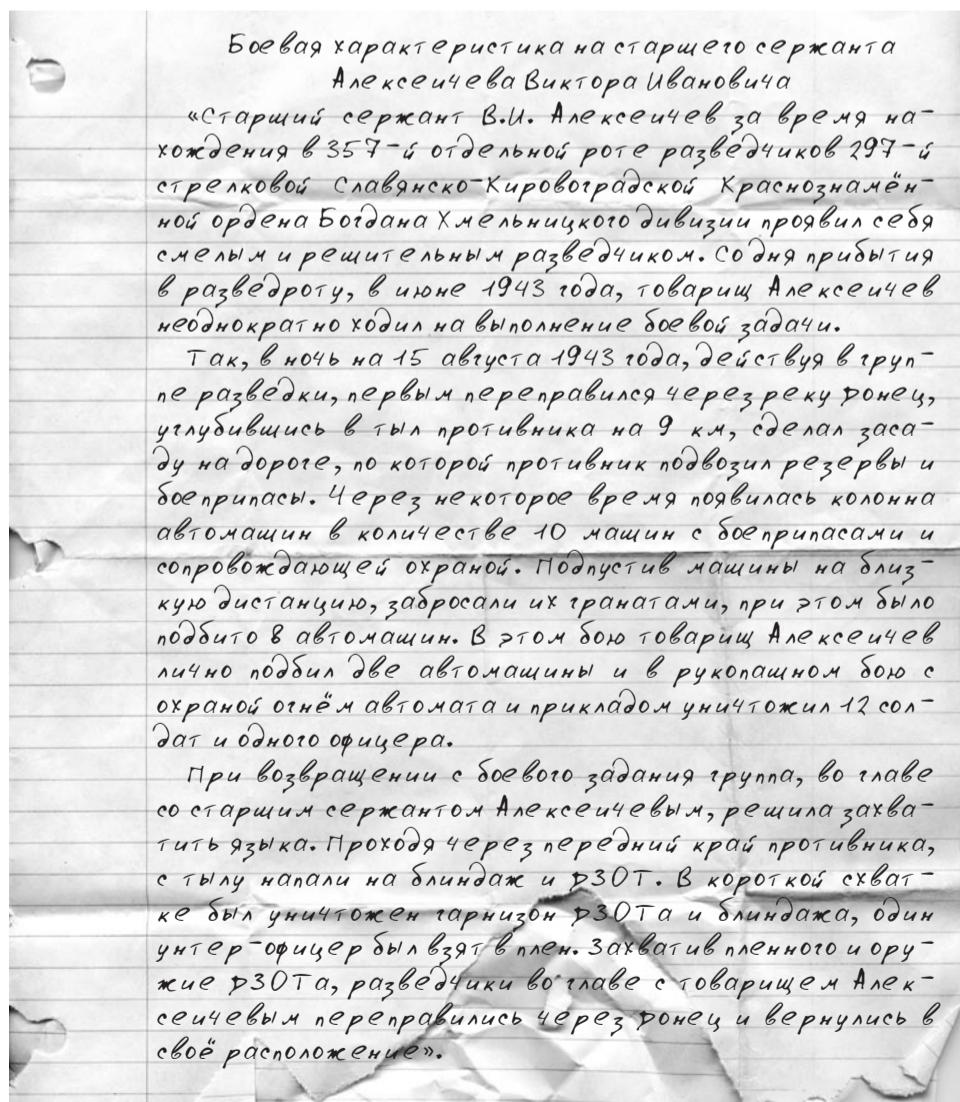 Боевая характеристика на старшего сержанта
Алексеичева Виктора Ивановича
«Старший сержант В.И. Алексеичев за время на-
хождения в 357-й отдельной роте разведчиков 297-й
стрелковой Славянско-Кировоградской Краснознамён-
ной ордена Богдана Хмельницкого дивизии проявил себя
смелым и решительным разведчиком. Со дня прибытия
в разведроту, в июне 1943 года, товарищ Алексеичев
неоднократно ходил на выполнение боевой задачи.
Так, в ночь на 15 августа 1943 года, действуя в груп-
пе разведки, первым переправился через реку Донец,
углубившись в тыл противника на 9 км, сделал заса-
ду на дороге, по которой противник подвозил резервы и
боеприпасы. Через некоторое время появилась колонна
автомашин в количестве 10 машин с боеприпасами и
сопровождающей охраной. Подпустив машины на близ-
кую дистанцию, забросали их гранатами, при этом было
подбито 8 автомашин. В этом бою товарищ Алексеичев
лично подбил две автомашины и в рукопашном бою с
охраной огнём автомата и прикладом уничтожил 12 сол-
дат и одного офицера.
При возвращении с боевого задания группа, во главе
со старшим сержантом Алексеичевым, решила захва-
тить языка. Проходя через передний край противника,
с тылу напали на блиндаж и ДЗОТ. В короткой схват-
ке был уничтожен гарнизон ДЗОТа и блиндажа, один
унтер-офицер был взят в плен. Захватив пленного и ору-
жие ДЗОТа, разведчики во главе с товарищем Алек-
сеичевым переправились через Донец и вернулись в
своё расположение».